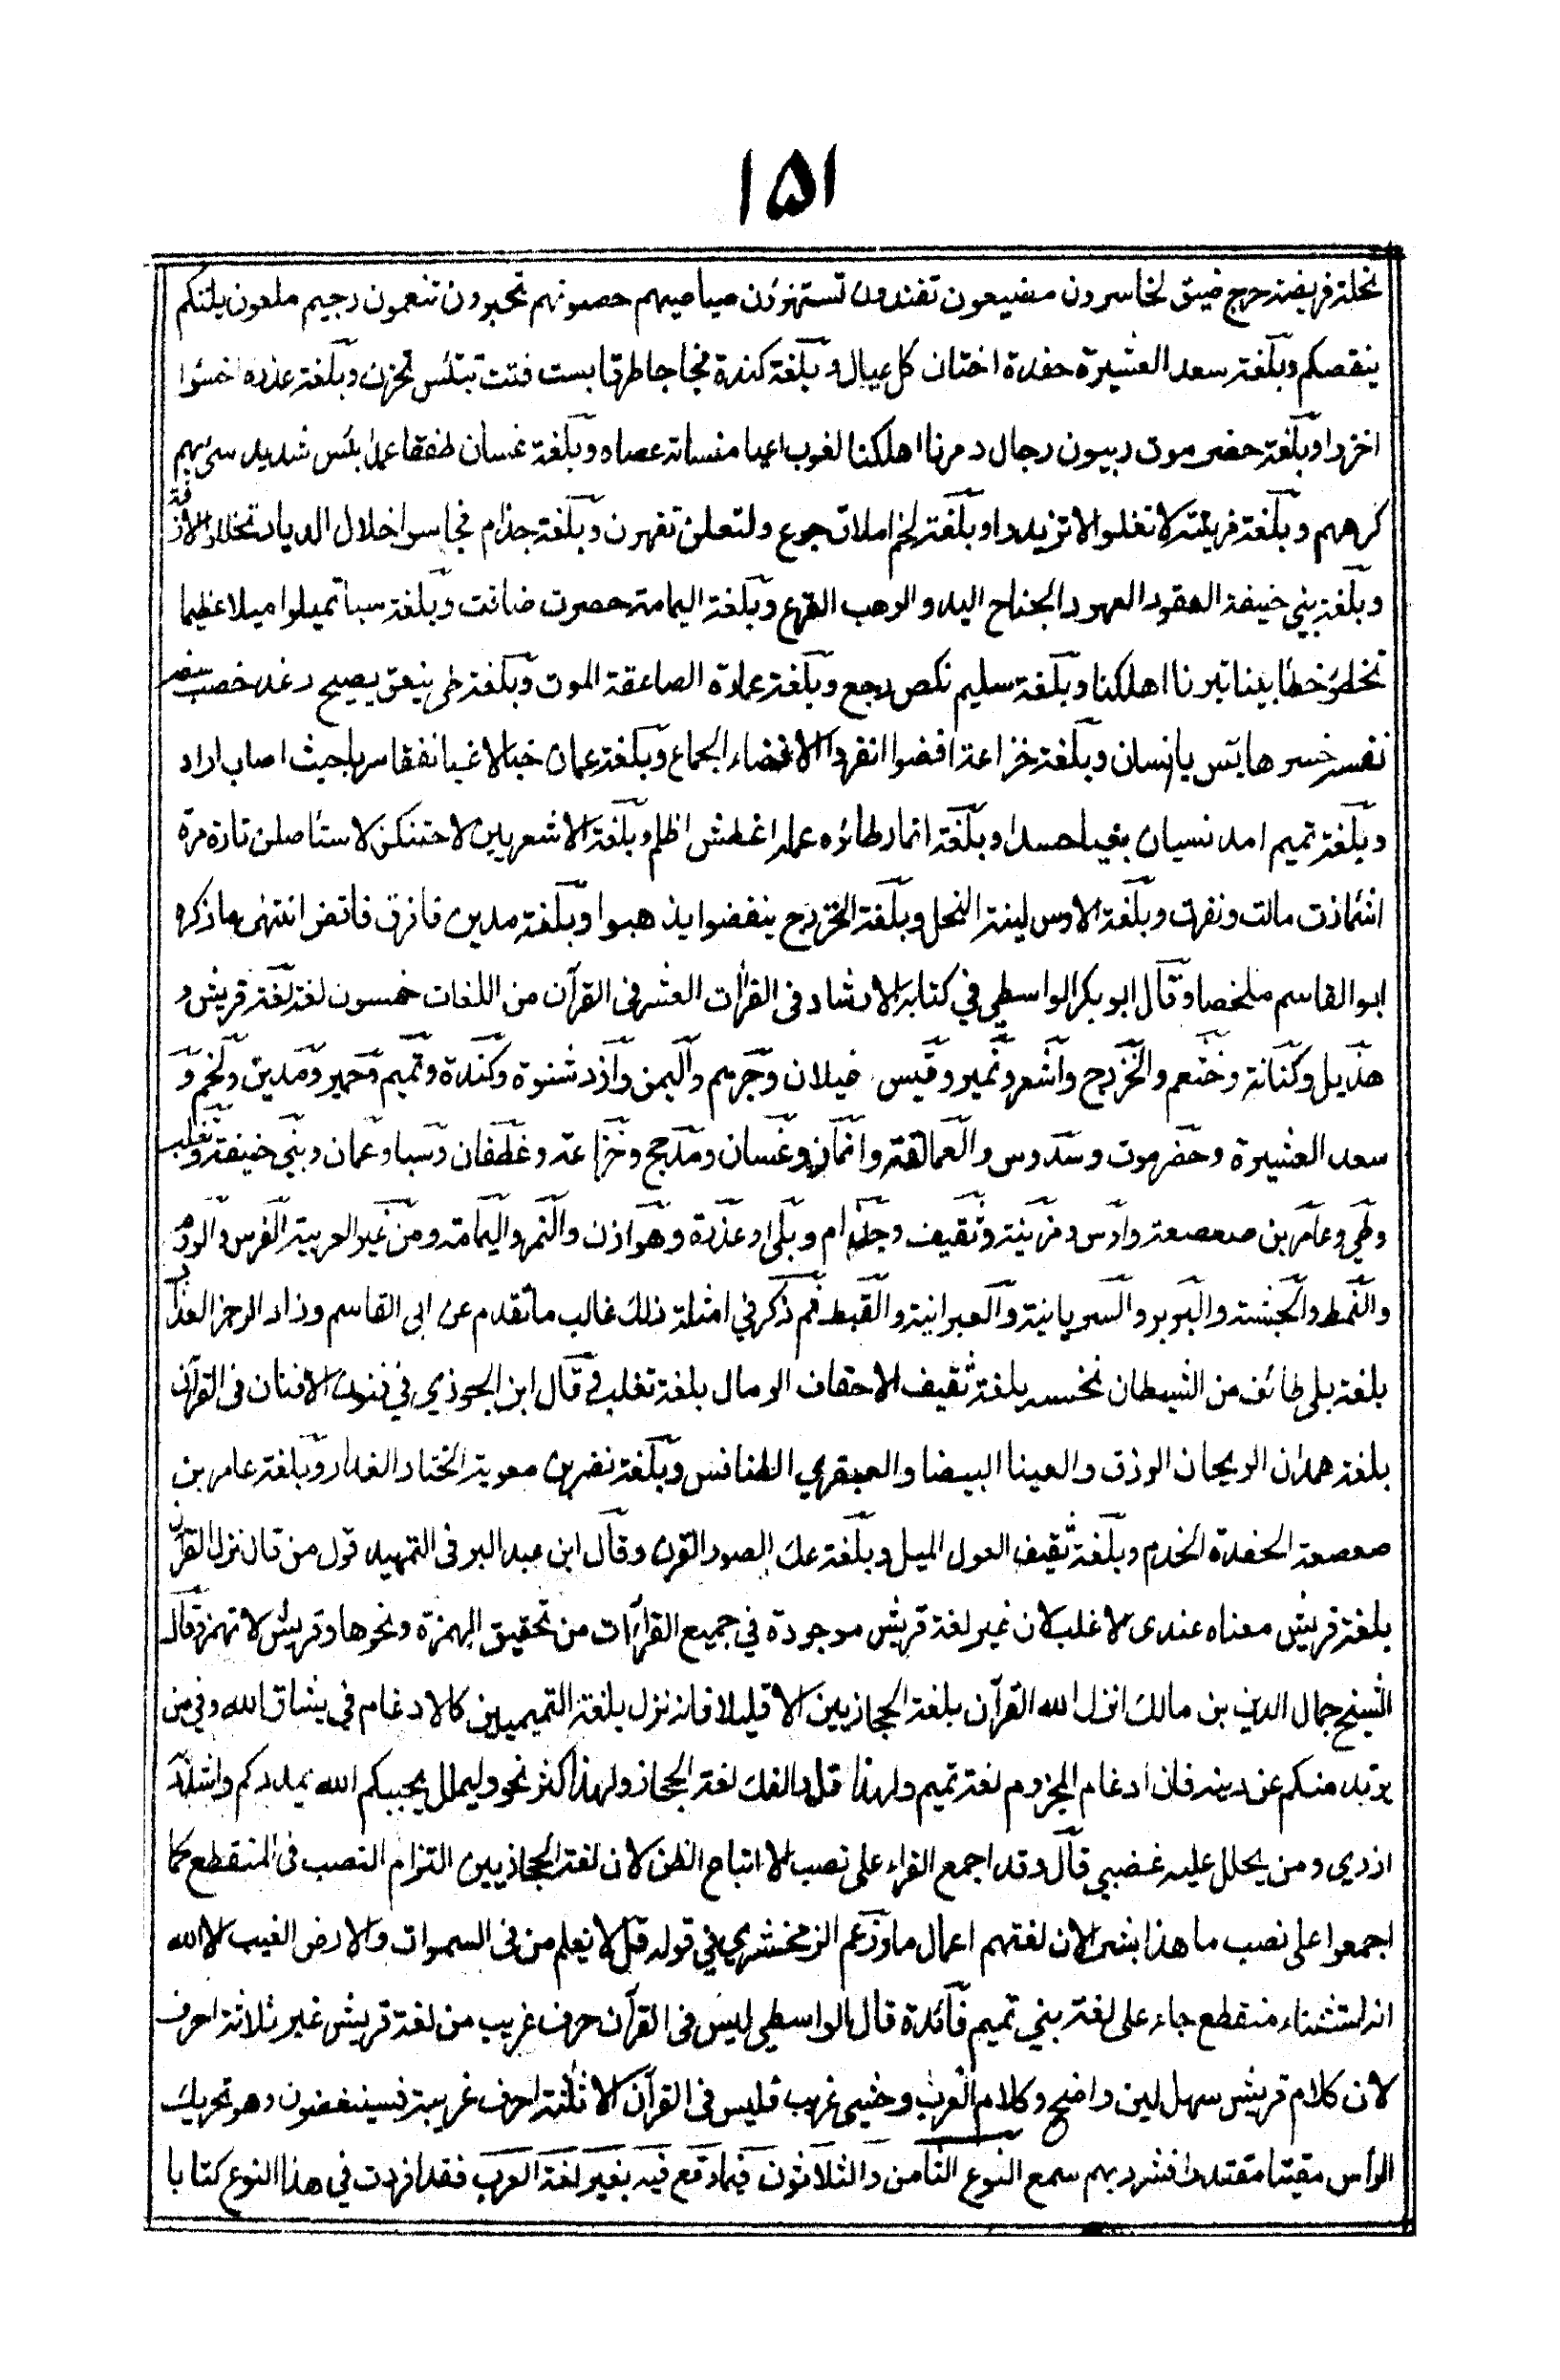 ١٥١
نحلة فريضة حرج ضيق لخاسرون مضيعون تفندون تستهزؤن صياصيهم حصونهم تحبرون تنعمون رجيم ملعون يلتكم
ينقصكم وبلغة سعد العشيرة حفدة اختان كل عيال وبلغة كندة فجاجا طرقا بست فتت تبتئس تحزن وبلغة عذره اخسئوا
اخزوا وبلغة حضرموت ربيون رجال دمرنا اهلكنا لغوب اعيا منسأته عصاه وبلغة غسان طفقا عملا بئس شديد سئ بهم
كرههم وبلغة مزينة لا تغلوا لا تزيدوا وبلغة لخم املاق جوع ولتعلن تقهرن وبلغة جذام فجاسوا خلال الديار تخللوا الازقة
وبلغة بني حنيفة العقود العهود الجناح اليد والرهب الفزع وبلغة اليمامة حصرت ضاقت وبلغة سبا تميلوا ميلا عظيما
تخطؤ خطأ بينا تبرنا اهلكنا وبلغة سليم نكص رجع وبلغة عمارة الصاعقة الموت وبلغة طي ينعق يصيح رغدا خصب سفه
نفسه خسرها يس يا انسان وبلغة خزاعة افضوا انفروا الافضاء الجماع وبلغة عمان خبالا غيا نفقا سربا حيث اصاب اراد
وبلغة تميم امد نسيان بغيا حسدا وبلغة انمار طائره عمله اغطش اظلم وبلغة الاشعريين لاحتنكن لاستأصلن تارة مرة
اشمازت مالت ونفرت وبلغة الاوس لينة النخل وبلغة الخزرج ينفضوا يذهبوا وبلغة مدين فافرق فاقض انتهى ما ذكره
ابو القاسم ملخصا وقال ابو بكر الواسطي في كتابه الارشاد في القراٰت العشر في القرآن من اللغات خمسون لغة لغة قريش و
هذيل وكنانة وخثعم والخزرج واشعر ونمير وقيس عيلان وجرهم واليمن وازد شنوة وكندة وتميم وحمير ومدين ولخم و
سعد العشيرة وحضرموت وسدوس والعمالقة وانمار وغسان ومذحج وخزاعة وغطفان وسبا وعمان وبني حنيفة وتغلب
وطي وعامر بن صعصعة واوس ومزينة وثقيف وجذام وبلى وعذرة وهوازن والنمر واليمامة ومن غير العربية الفرس والروم
والنبط والحبشة والبربر والسريانية والعبرانية والقبط ثم ذكر في امثلة ذلك غالب ما تقدم عن ابى القاسم وزاد الرجز العذاب
بلغة بلى طائف من الشيطان نخسه بلغة ثقيف الاحقاف الرمال بلغة تغلب وقال ابن الجوزي في فنون الافنان فى القرآن
بلغة همدان الريحان الرزق والعينا البيضا والعبقري الطنافس وبلغة نصر بن معوية الختار الغدار وبلغة عامر بن
صعصعة الحفدة الخدم وبلغة ثقيف العول الميل وبلغة عك الصور القرن وقال ابن عبد البر فى التمهيد قول من قال نزل القرآن
بلغة قريش معناه عندى الاغلب لان غير لغة قريش موجودة في جميع القرآت من تحقيق الهمزة ونحوها وقريش لا تهمز وقال
الشيخ جمال الدين بن مالك انزل الله القرآن بلغة الحجازيين الا قليلا فانه نزل بلغة التميميين كالادغام في يشاق الله وفي من
يرتد منكم عن دينه فان ادغام المجزوم لغة تميم ولهذا قل والفك لغة الحجاز ولهذا كثر نحو وليملل يحببكم الله يمددكم واشدد به
ازري ومن يحلل عليه غضبي قال وقد اجمع القراء على نصب الا اتباع الظن لان لغة الحجازيين التزام النصب فى المنقطع كما
اجمعوا على نصب ما هذا بشرا لان لغتهم اعمال ما وزعم الزمخشري في قوله قل لا يعلم من فى السموات والارض الغيب الا الله
انه استثناء منقطع جاء على لغة بني تميم فآئدة قال الواسطي ليس فى القرآن حرف غريب من لغة قريش غير ثلاثة احرف
لان كلام قريش سهل لين واضح وكلام العرب وحشي غريب فليس فى القرآن الا ثلثة احرف غريبة فسينغضون وهو تحريك
الرأس مقيتا مقتدرا فشرد بهم سمع النوع الثامن والثلاثون فيما وقع فيه بغير لغة العرب فقد افردت في هذا النوع كتابا